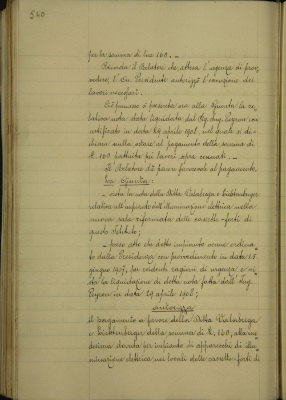 540
per la somma di lire 160. _
Ricorda il Relatore che, attesa l'urgenza di prov-
vedere, l'On. Presidente autorizzò l'esecuzione dei
lavori
Ciò premesso si presenta ora alla Giunta la re-
lativa nota stata liquidata dal Rag. Ing. con
certificato in data 29 aprile 1908, nel quale si di-
chiara nulla ostare al pagamento della somma di
L. 160 lavori
Il Relatore dà parere favorevole al pagamento.
La Giunta:
- vista la nota della Ditta e
relativa all'impianto dell'illuminazione elettrica nella
nuova sala riformata delle cassette-forti di
questo Istituto;
- preso atto che detto impianto venne ordina-
to dalla Presidenza con provvedimento in data 25
giugno 1907, per evidenti ragioni di urgenza e vi-
sta la liquidazione di detta nota fatta dall'Ing.
in data 29 aprile 1908;
autorizza
il pagamento a favore della Ditta
e della somma di L. 160, alla me-
desima dovuta per impianto di apparecchi di illu-
minazione elettrica nei locali delle cassette-forti di